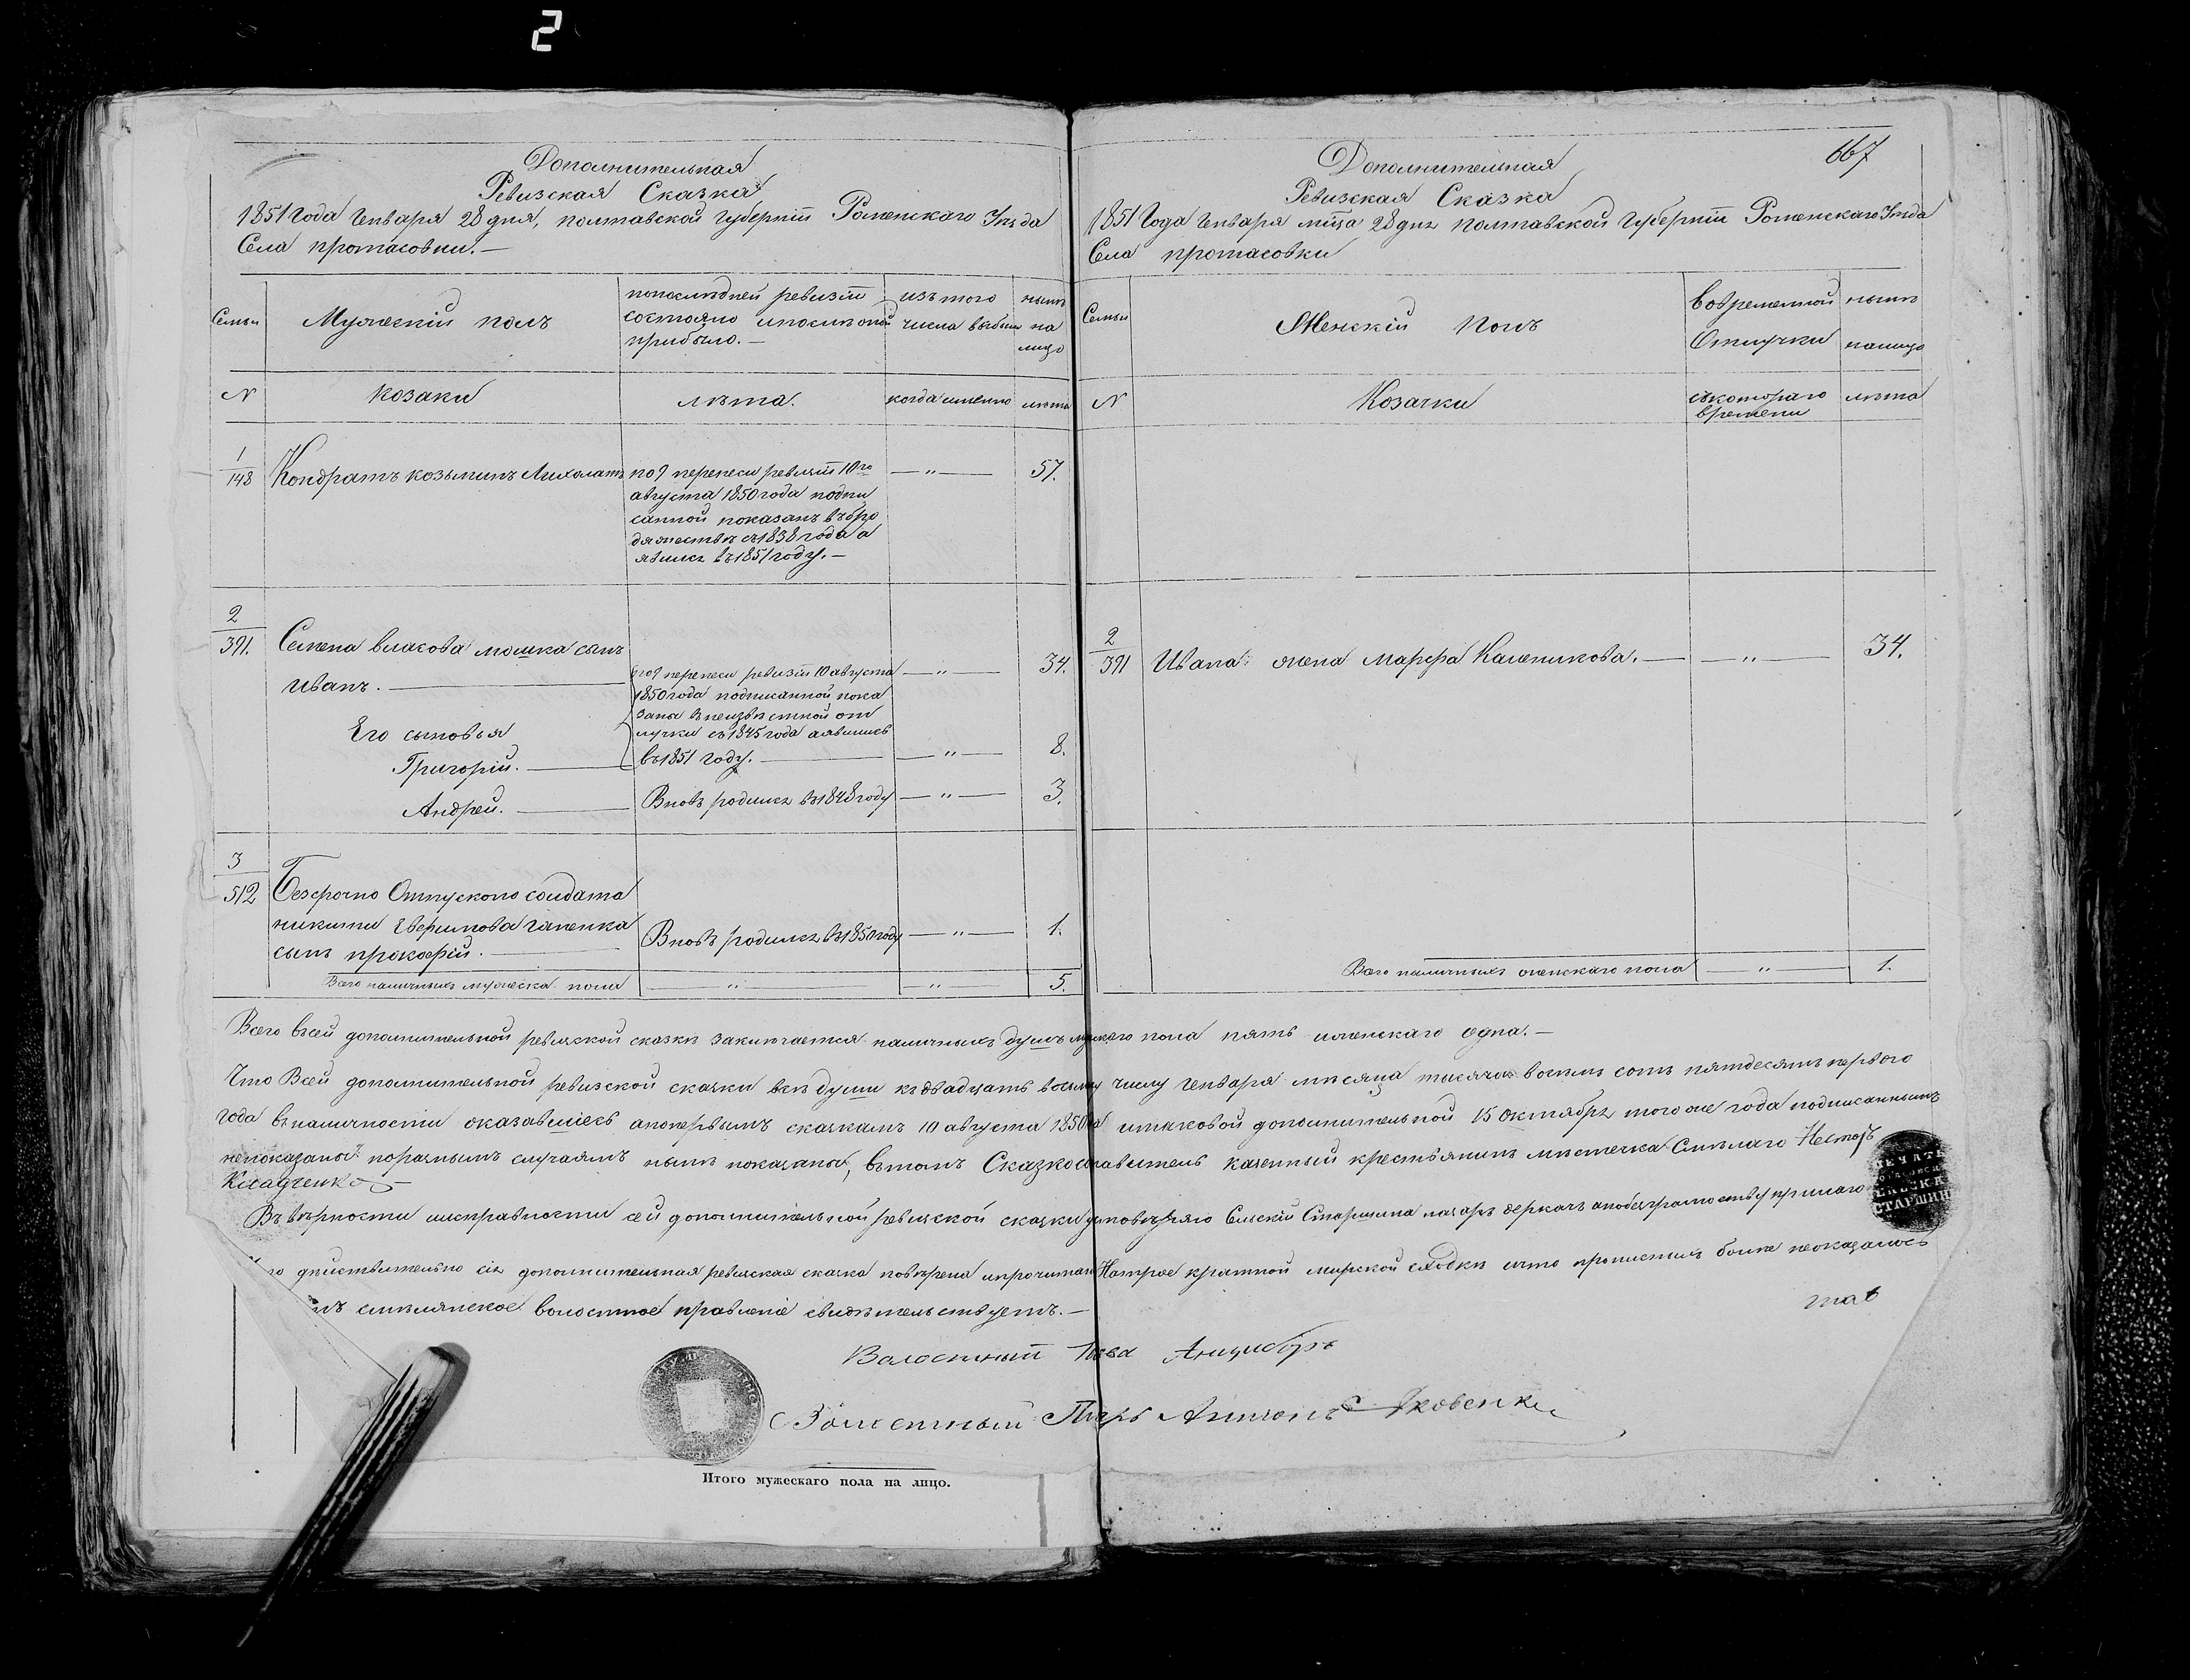 2
Дополнительная
Ревизская Сказка
1851 Года Генваря 28 дня, полтавской губерніи Роменскаго Уѣзда
Села протасовки. —
Семьи
Мужескій полъ
попослѣдней ревизіи состояло ипослѣ оной прибыло. —
изъ того числа выбыли
нынѣ на лицо
N
козаки
лѣта.
когда именно
лѣта
1
148
Кондратъ козьминъ Лихолатъ
по 9 переписи ревизіи 10го
августа 1850 года подпи
санной показанъ въ бро
дяжествѣ съ 1838 года а
явился въ 1851 году. —
— " —
57.
2
391.
Семена власова мошка сынъ
Иванъ. —
по 9 переписи ревизіи 10 августа
1850 года подписанной пока
заны в неизвѣстной от
лучки съ 1845 года а явились
въ 1851 году. —
— " —
34.
Его сыновья
Григорій. —
— " —
8.
Андрей. —
Вновь родился въ 1848 году
— " —
3.
3
512
Безсрочно Отпускного солдата
никиты Гапенка
сынъ прокофій. —
Вновь родился въ 1850 году
— " —
1.
Всего наличныхъ мужеска пола
— " —
"
5.
667
Дополнительная
Ревизская Сказка
1851 Года Генваря мѣца 28 дня Полтавской Губерніи Роменскаго Уѣзда
Села протасовки
Семьи
Женскій Полъ
Вовременной Отлучки
нынѣ налицо
N
Козачки
съкотораго времени
лѣта
2
391
Ивана жена Марфа Каленикова. —
— " —
34.
Всего наличныхъ женскаго пола
— " —
1.
Всего въсей дополнительной ревизской сказкѣ заключается наличныхъ душъ мужскаго пола пять иженскаго одна. —
Что Всей дополнительной ревизской сказки всѣ души къ двадцать восьмму числу Генваря мѣсяца тысяча восемь сотъ пятдесятъ первого
года вьналичности оказавшіесь апопервымъ сказкамъ 10 августа 1850 года итаковой дополнительной 15 Октября того же года подписаннымъ
непоказаны поразнымъ случаямъ нынѣ показаны, вьтомъ Сказкосоставитель казенный крестьянинъ мѣстечка Смѣлаго Несторъ
Въ вѣрности иисправности сей дополнительной ревизской сказки удостовѣряю Сельскій Старшина лазарь деркачь апобезграмотству прилагаю
дѣйствительно сія дополнительная ревизская сказка повѣрена ипрочитана На трое кратной мирской сходкѣ ичто прописныхъ болѣе неоказалось
смѣлянское волостное правленіе свидѣтельствуетъ. —
ПЕЧАТЬ
СТАРШИН
Волостный Голова Анцибуръ
Волостный Писарь Антонъ Яковенко
Итого мужескаго пола на лицо.